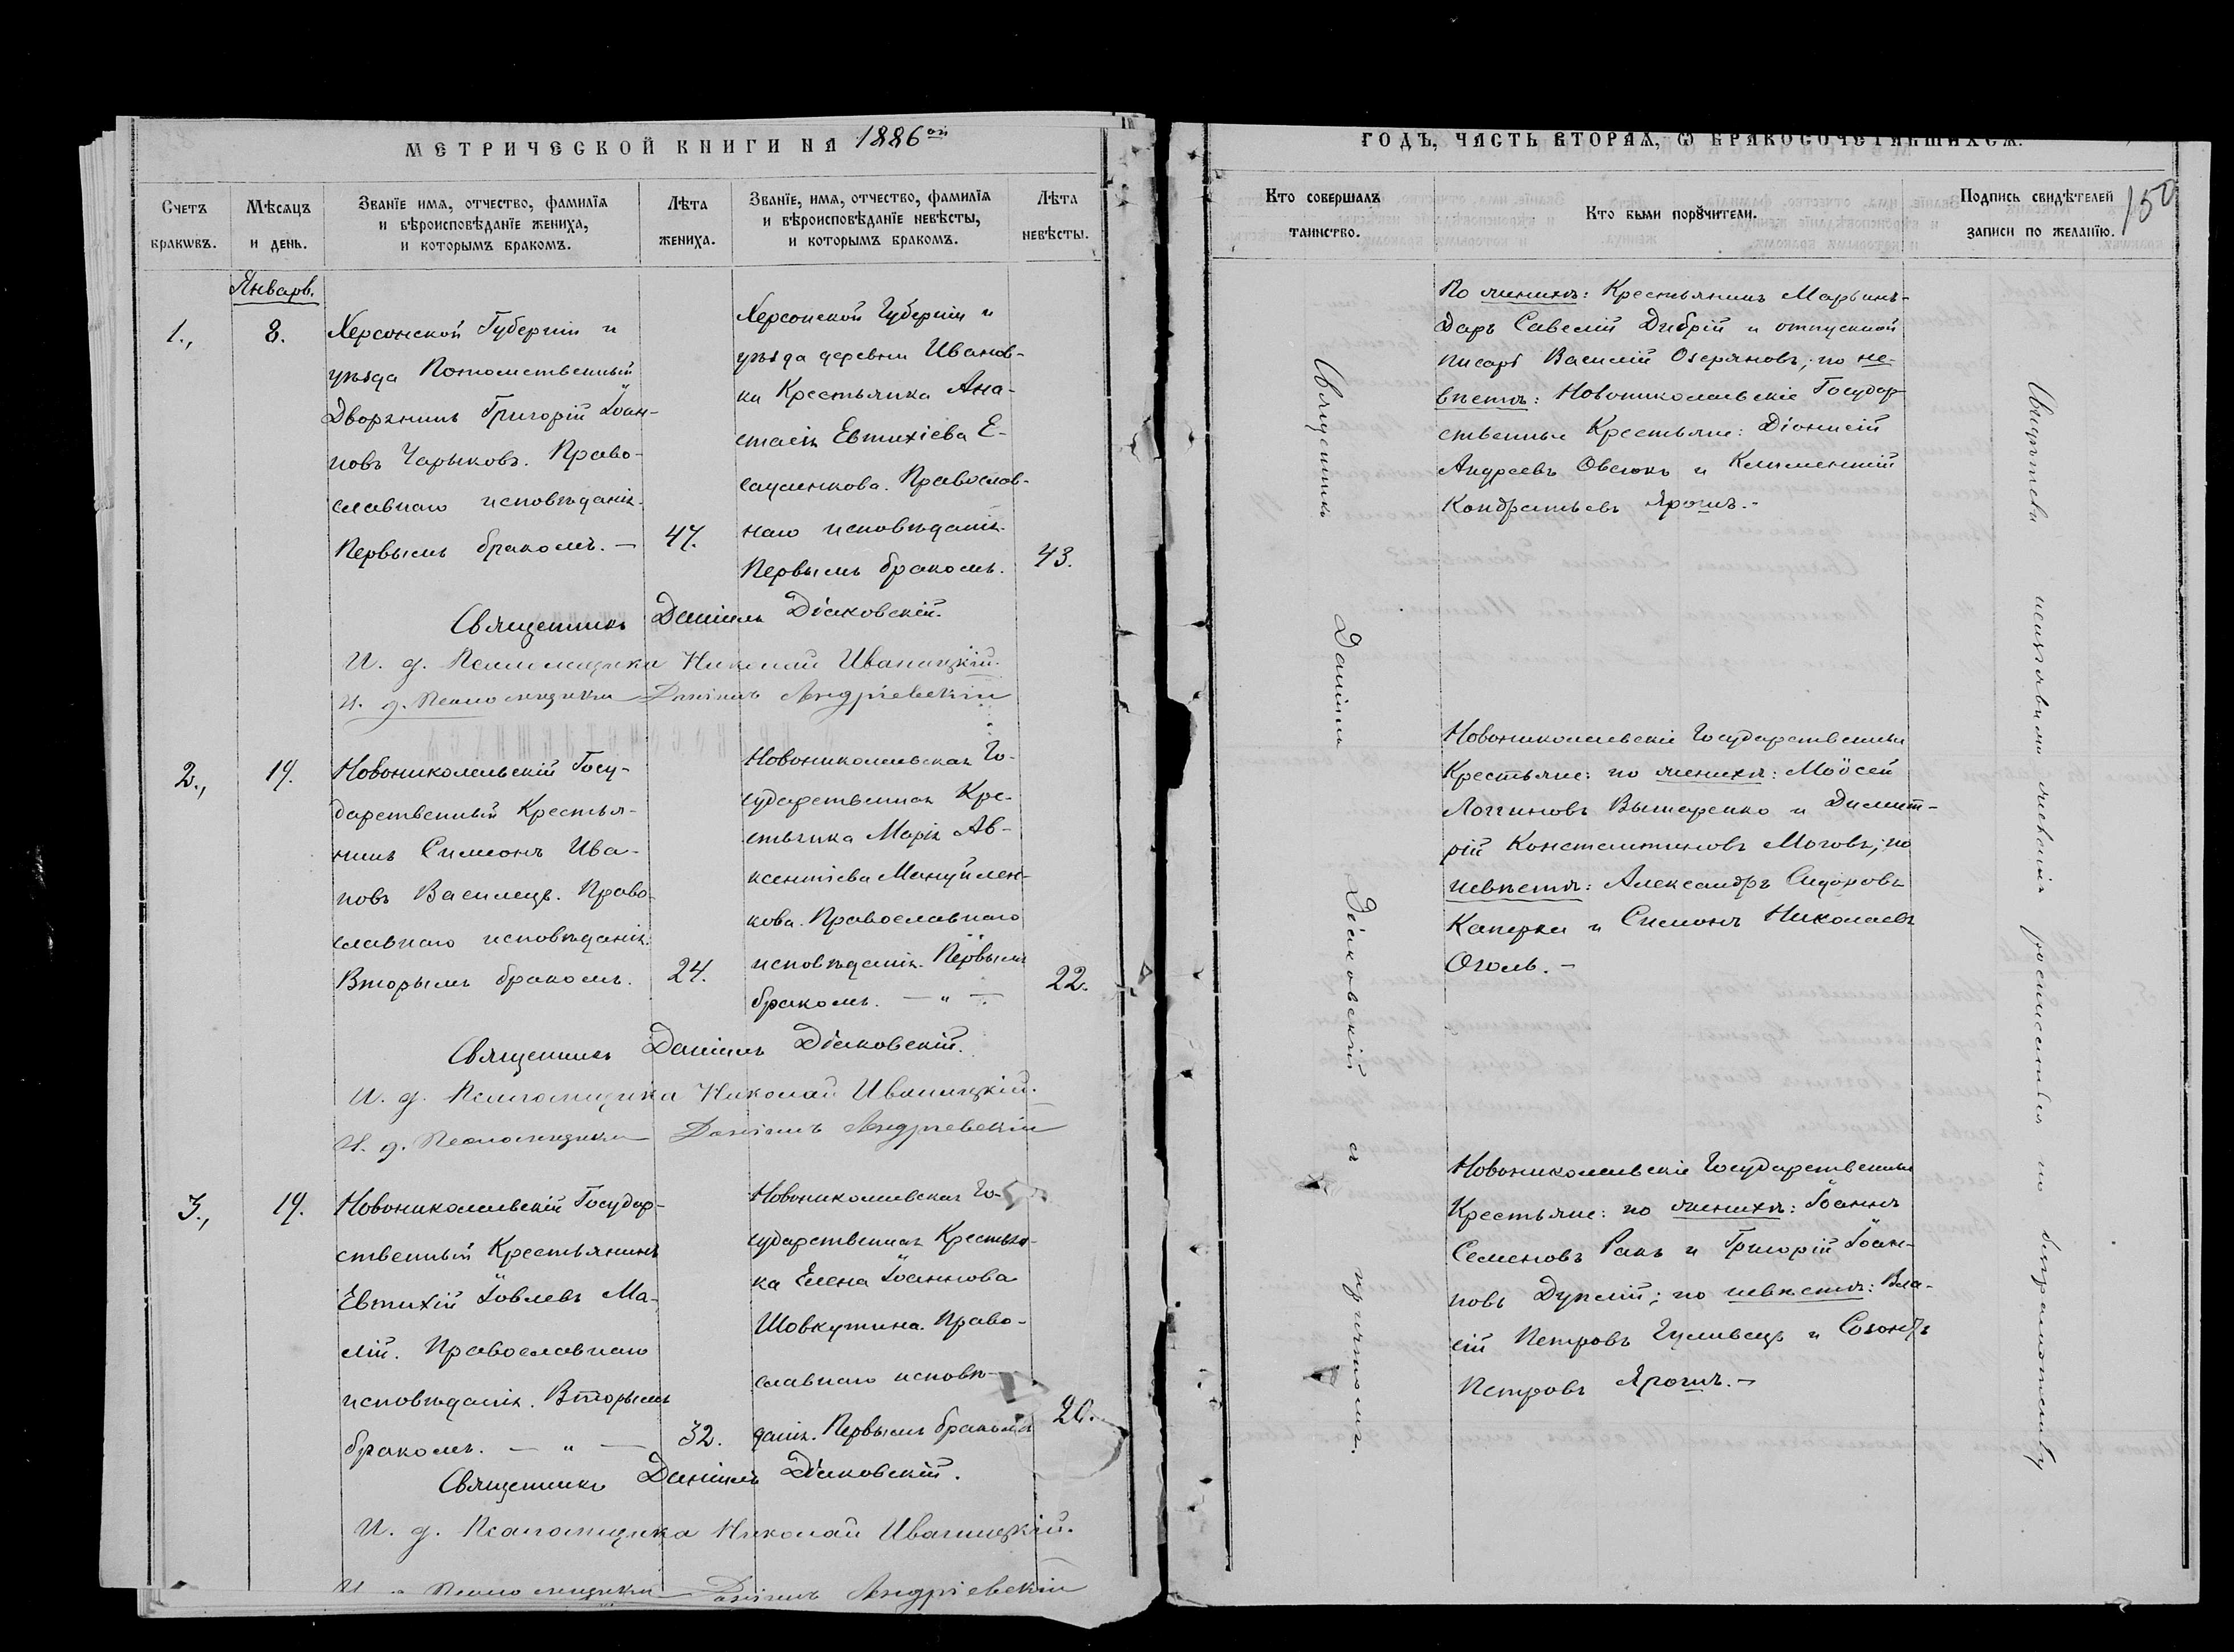 МЕТРИЧЕСКОЙ КНИГИ НА 1886ой
Счетъ браковъ.
Мѣсяцъ и день.
Званїе имя, отчество, фамилїя
и вѣроисповѣданїе жениха,
и которымъ бракомъ.
Лѣта
жениха.
Званїе, имя, отчество, фамилїя
и вѣроисповѣданїе невѣсты,
и которымъ бракомъ.
Лѣта
невѣсты.
Январь.
1.,
8.
Херсонской Губерніи и
уѣзда Потомственный
Дворянинъ Григорій Іоан-
новъ Чарыковъ. Право-
славнаго исповѣданія.
Первымъ бракомъ. —
47.
Херсонской Губерніи и
уѣзда деревни Иванов-
ки Крестьянка Ана-
стасія Евтихіева Е-
сауленкова. Православ-
наго исповѣданія.
Первымъ бракомъ.
43.
Священникъ Даніилъ Діаковскій.
И. д. Псаломщика Николай Иваницкій.
И. д. Псаломщика Даніилъ Андріевскій
2.,
19.
Новониколаевскій Госу-
дарственный Крестья-
нинъ Симеонъ Ива-
новъ Василецъ. Право-
славнаго исповѣданія.
Вторымъ бракомъ.
24.
Новониколаевская Го-
сударственная Кре-
стьянка Марія Ав-
ксентіева Мануйлен-
кова. Православнаго
исповѣданія. Первымъ
бракомъ. — " —
22.
Священникъ Даніилъ Діаковскій.
И. д. Псаломщика Николай Иваницкій.
И. д. Псаломщика Даніилъ Андріевскій
3.,
19.
Новониколаевскій Государ-
ственный Крестьянинъ
Евтихій Іовлевъ Ма-
лій. Православнаго
исповѣданія. Вторымъ
бракомъ. — " —
32.
Новониколаевская Го-
сударственная Крестьян-
ка Елена Іоаннова
Шовкутина. Право-
славнаго исповѣ-
данія. Первымъ бракомъ
20.
Священникъ Даніилъ Діаковскій.
И. д. Псаломщика Николай Иваницкій.
И. д. Псаломщика Даніилъ Андріевскій
ГОДЪ, ЧАСТЬ ВТОРАЯ, Ѡ БРАКОСОЧЕТАВШИХСЯ.
150
Кто совершалъ
таинство.
Кто были порꙋчители.
Подпись свидѣтелей
записи по желанїю.
Священникъ Даніилъ Діаковскій съ причтомъ.
По женихѣ: Крестьянинъ Марьинъ-
Даръ Савелій Дибрій и отпускной
писарь Василій Озеряновъ; по не-
вѣстѣ: Новониколаевскіе Государ-
ственные Крестьяне: Діонисій
Андреевъ Овсюкъ и Климентій
Кондратьевъ Ярошъ. -
Новониколаевскіе Государственные
Крестьяне: по женихѣ: Моѵсей
Логгиновъ Вытаренко и Димит-
рій Константиновъ Моговъ; по
невѣстѣ: Александръ Сидоровъ
Каперка и Симеонъ Николаевъ
Оголь. -
Новониколаевскіе Государственные
Крестьяне: по женихѣ: Іоаннъ
Семеновъ Ракъ и Григорій Іоан-
новъ Дуплій; по невѣстѣ: Вла-
сій Петровъ Гуливецъ и Созонтъ
Петровъ Ярошъ. -
Свидѣтели неизъявили желанія росписаться по безграмотству